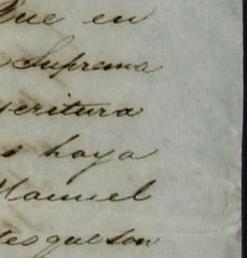 Que en
Suprema
scritura
s haya
Manuel
tes que son